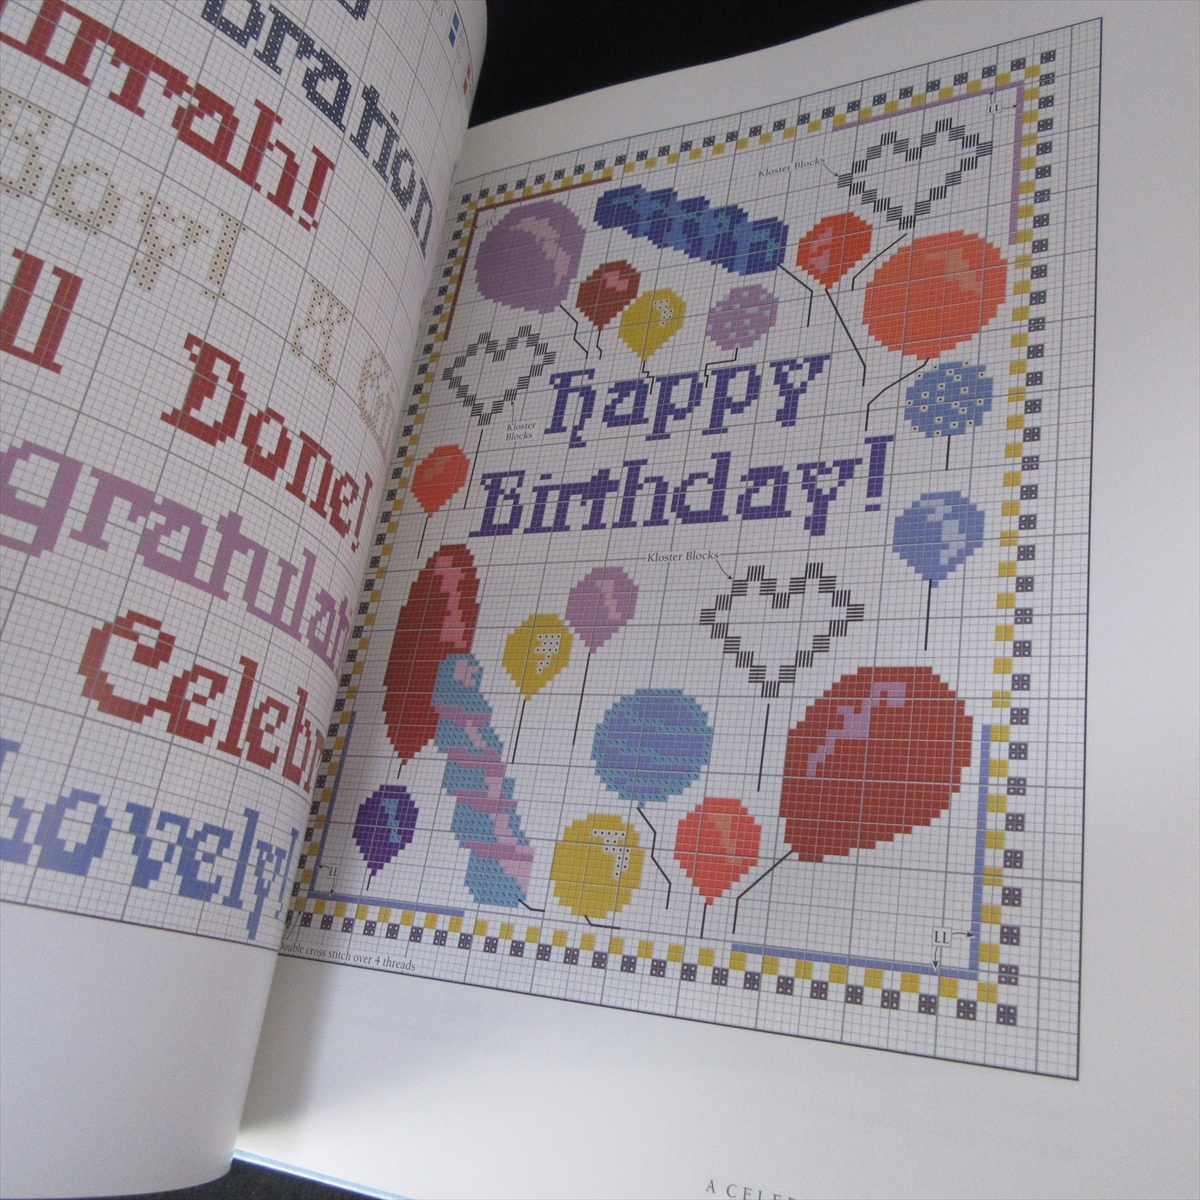 bration
urrah!
Boy!
ll
Done!
gratulat
Celebr
Lovely!
Kloster Blocks
LL
happy
Kloster
Blocks
Birthday!
Kloster Blocks
LL
LL
Double cross stitch over 4 threads
A CELE